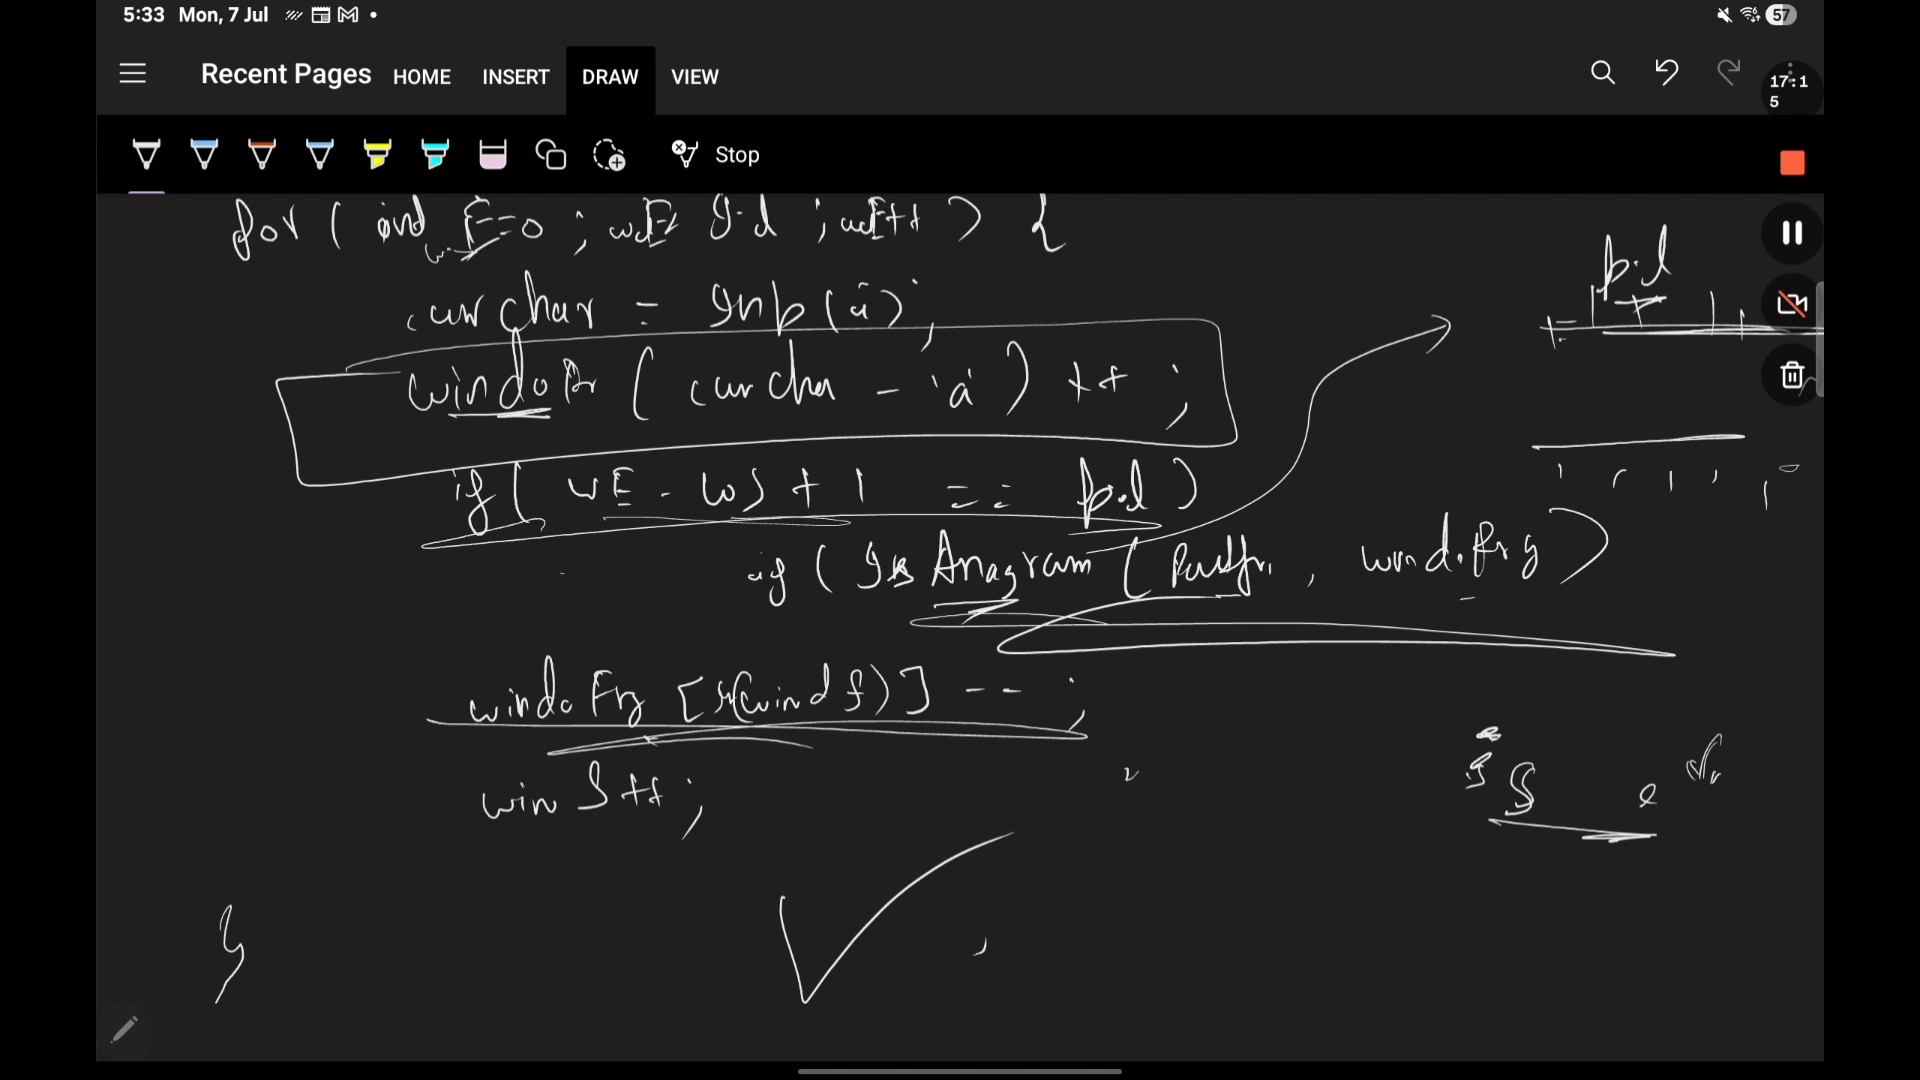 5:33 Mon, 7 Jul 57
Recent Pages HOME INSERT DRAW VIEW
17:1
5
Stop
for ( int E=0 ; wE I.l ; wE++ ) {
cur char = Inp(i);
p.l
window ( curcha - 'a' ) ++ ;
if ( wE - wS + 1 == p.l )
if ( Is Anagram ( Patfr, wind.frq )
windoFrq [ (wind f) ] -- ;
win S ++ ;
S e
}